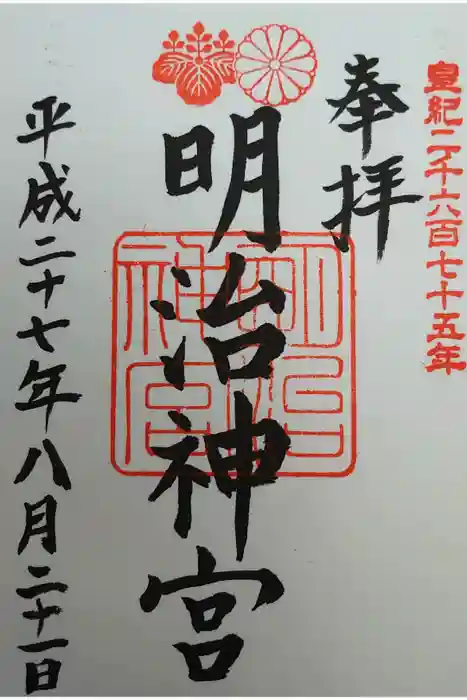 皇紀二千六百七十五年
奉拝
明治神宮
明治神宮
平成二十七年八月二十一日